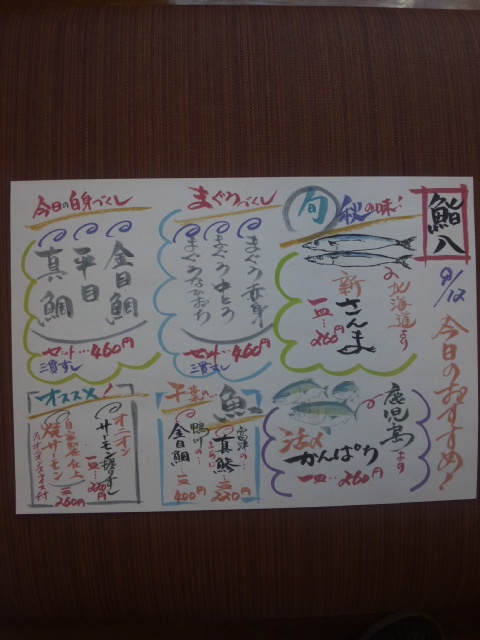 鮨八
9/12
今日のおすすめ!
旬
秋の味!
北海道より
新さんま
一皿…260円
まぐろづくし
まぐろ赤身
まぐろ中とろ
まぐろなかおち
セット…460円
三貫すし
今日の白身づくし
金目鯛
平目
真鯛
セット…460円
三貫すし
鹿児島より
活〆
かんぱち
一皿…260円
千葉の魚
富津の…
真鯵
一皿
220円
鴨川の…
金目鯛
一皿
400円
オススメ!
オニオン
サーモン握りすし
焼サーモン
一皿
260円